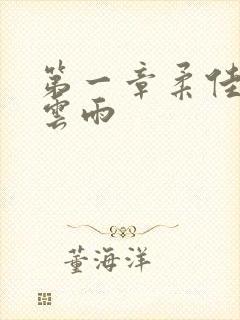 第一章柔佳
雲雨
董海洋